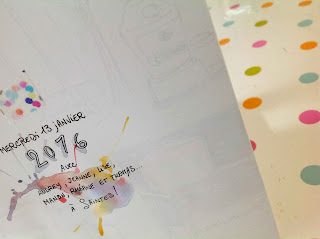 MERCREDI 13 JANVIER
2016
AVEC
AUDREY, JEANNE, LISE,
MANON, RHÔNE ET TURNAS...
À SAINTES!